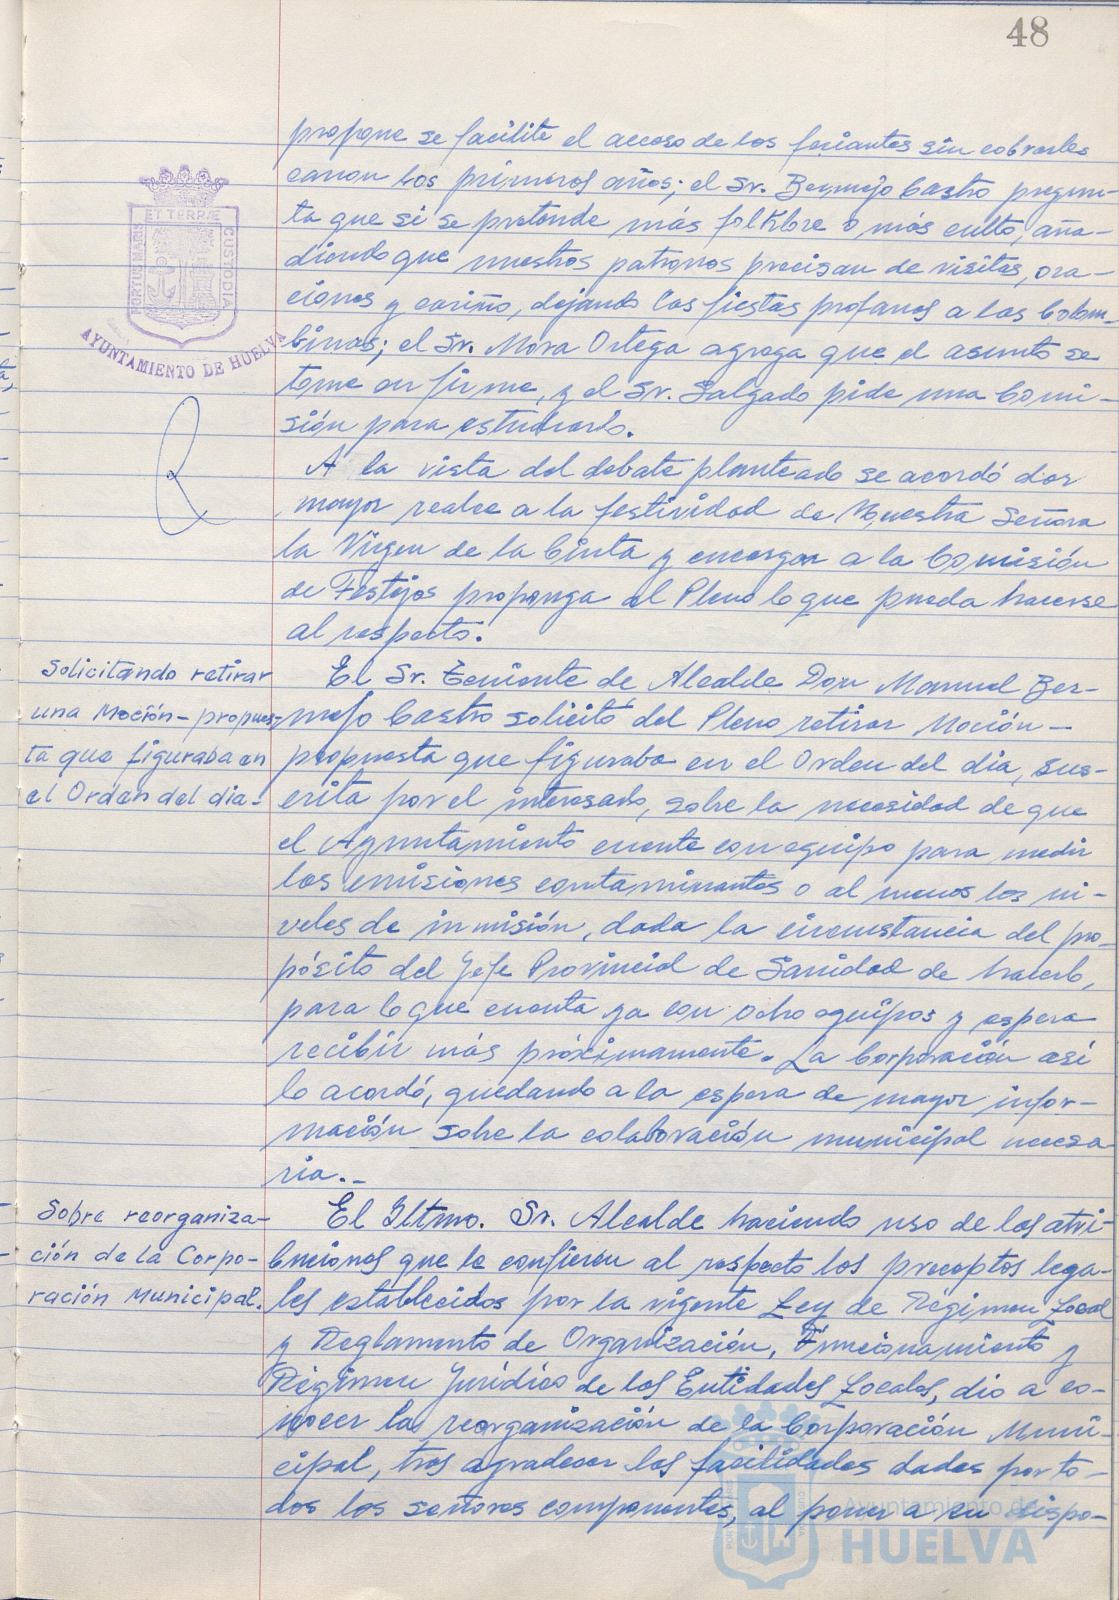 48
propone se facilite el acceso de los feriantes sin cobrarles
canon los primeros años; el Sr. Bermejo Castro pregun-
ta que si se pretende más folklore o más culto, aña-
diendo que nuestros patronos precisan de visitas, ora-
ciones y cariño, dejando las fiestas profanas a las Colom-
binas; el Sr. Mora Ortega agrega que el asunto se
tome en firme, y el Sr. Salgado pide una Comi-
sión para estudiarlo.
A la vista del debate planteado se acordó dar
mayor realce a la festividad de Nuestra Señora
la Virgen de la Cinta y encargar a la Comisión
de Festejos proponga al Pleno lo que pueda hacerse
al respecto.
Solicitando retirar
una Moción-propues-
ta que figuraba en
el Orden del dia.-
El Sr. Teniente de Alcalde Don Manuel Ber-
mejo Castro solicitó del Pleno retirar Moción-
propuesta que figuraba en el Orden del dia, sus-
crita por el interesado, sobre la necesidad de que
el Ayuntamiento cuente con equipo para medir
las emisiones contaminantes o al menos los ni-
veles de inmisión, dada la circunstancia del pro-
pósito del Jefe Provincial de Sanidad de hacerlo,
para lo que cuenta ya con ocho equipos y espera
recibir más próximamente. La Corporación así
lo acordó, quedando a la espera de mayor infor-
mación sobre la colaboración municipal necesa
ria.-
Sobre reorganiza-
ción de la Corpo-
ración Municipal.
El Iltmo. Sr. Alcalde haciendo uso de las atri-
buciones que le confieren al respecto los preceptos lega-
les establecidos por la vigente Ley de Régimen Local
y Reglamento de Organización, Funcionamiento y
Régimen Jurídico de las Entidades Locales, dio a co-
nocer la reorganización de la Corporación Muni-
cipal, tras agradecer las facilidades dadas por to-
dos los señores componentes, al poner a su dispo-
PORTUS MARIS
ET TERRÆ
CUSTODIA
AYUNTAMIENTO DE HUELVA
Ayuntamiento de
HUELVA